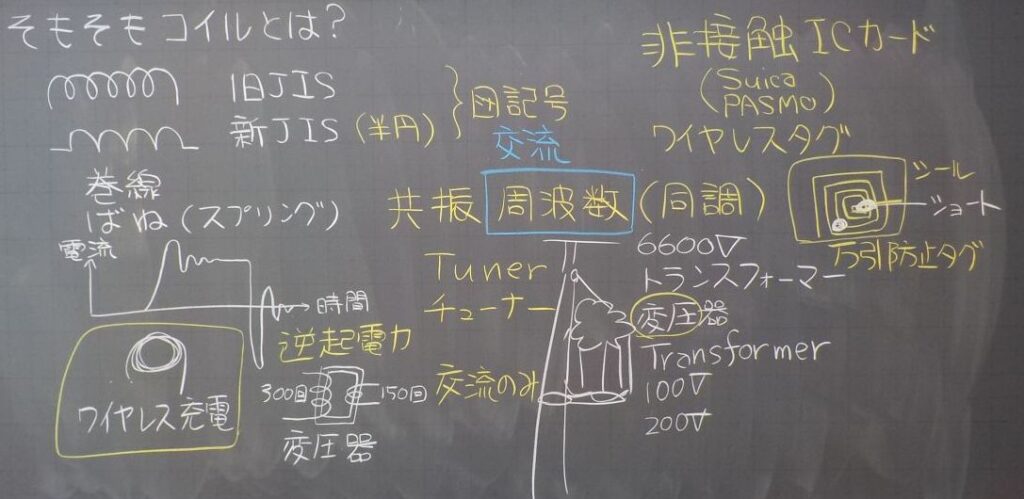 そもそもコイルとは?
旧JIS
新JIS(半円)
図記号
巻線
ばね(スプリング)
電流
時間
逆起電力
ワイヤレス充電
300回
150回
変圧器
交流
共振 周波数 (同調)
Tuner
チューナー
交流のみ
6600V
トランスフォーマー
変圧器
Transformer
100V
200V
非接触ICカード
(Suica
PASMO)
ワイヤレスタグ
シール
ショート
万引防止タグ